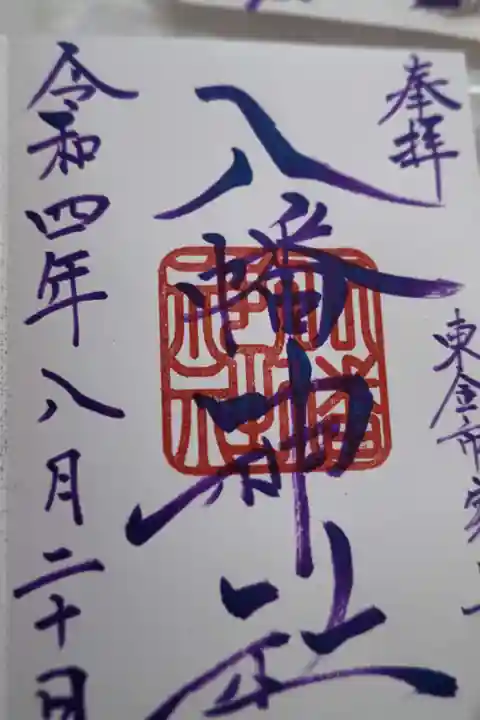 奉拝
東金市家之
八幡神社
令和四年八月二十日